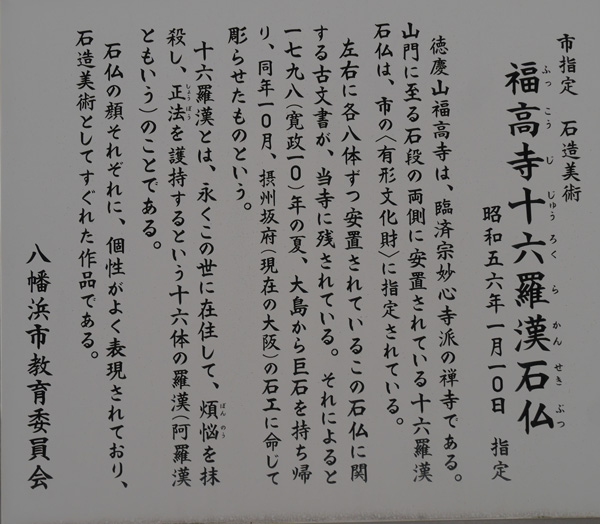 市指定 石造美術
福高寺十六羅漢石仏
ふっこうじじゅうろくらかんせきぶつ
昭和五六年一月一〇日 指定
徳慶山福高寺は、臨済宗妙心寺派の禅寺である。
山門に至る石段の両側に安置されている十六羅漢
石仏は、市の〈有形文化財〉に指定されている。
左右に各八体ずつ安置されているこの石仏に関
する古文書が、当寺に残されている。それによると
一七九八(寛政一〇)年の夏、大島から巨石を持ち帰
り、同年一〇月、摂州坂府(現在の大阪)の石工に命じて
彫らせたものという。
十六羅漢とは、永くこの世に在住して、煩悩を抹
ぼんのう
殺し、正法を護持するという十六体の羅漢(阿羅漢
しょうぼう
ともいう)のことである。
石仏の顔それぞれに、個性がよく表現されており、
石造美術としてすぐれた作品である。
八幡浜市教育委員会